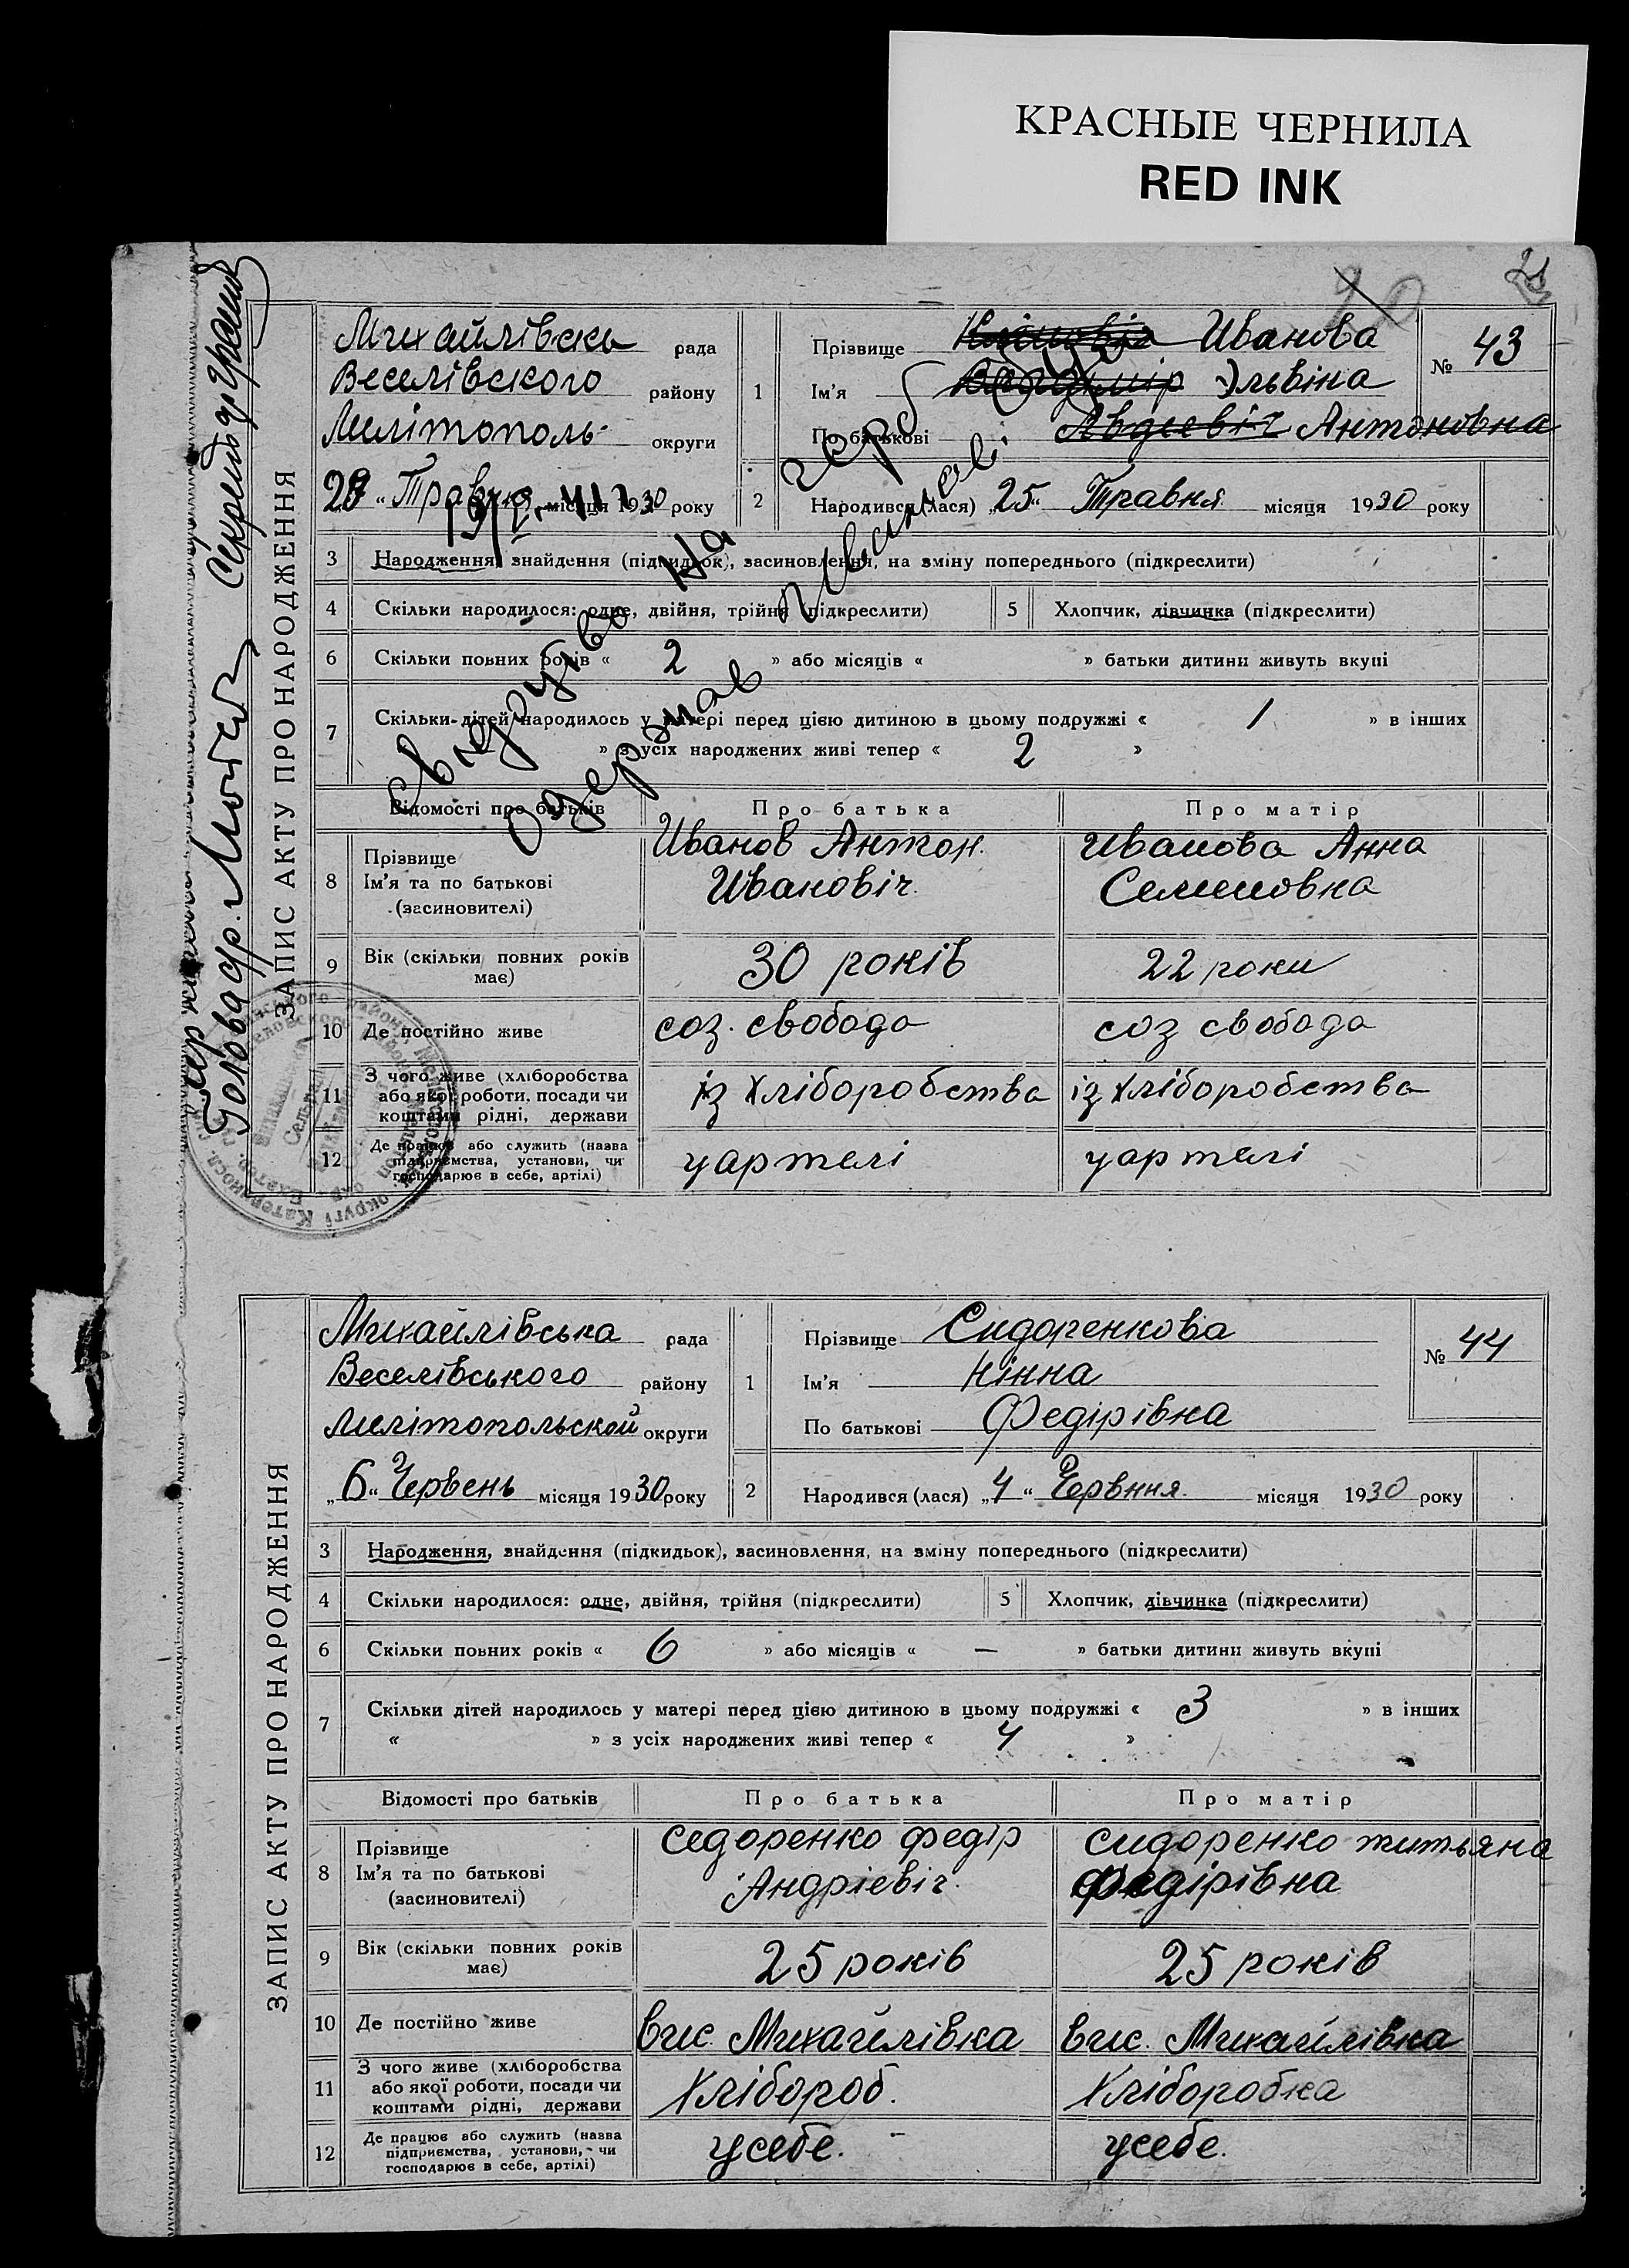 КРАСНЫЕ ЧЕРНИЛА
RED INK
21
20
ЗАПИС АКТУ ПРО НАРОДЖЕННЯ
Михайлівська рада
Веселівского району
Мелітополь- округи
28 " Травня місяця 1930 року
1 Прізвище Иванова
Ім'я Владімір Эльвіна
По батькові Авдеевіч Антоновна
№ 43
2 Народився (лася) „25" Травня місяця 1930 року
3 Народження, знайдення (підкидьок), засиновлення, на зміну попереднього (підкреслити)
4 Скільки народилося: одне, двійня, трійня (підкреслити) 5 Хлопчик, дівчинка (підкреслити)
6 Скільки повних років « 2 » або місяців « » батьки дитини живуть вкупі
7 Скільки дітей народилось у матері перед цією дитиною в цьому подружжі « 1 » в інших
» з усіх народжених живі тепер « 2 »
Відомості про батьків Про батька Про матір
8 Прізвище Ім'я та по батькові (засиновителі)
Иванов Антон Ивановіч
Иванова Анна Семеновна
9 Вік (скільки повних років має) 30 років 22 роки
10 Де постійно живе соз. свобода соз свобода
11 З чого живе (хліборобства або якої роботи, посади чи коштами рідні, держави
із хліборобства із хліборобства
12 Де працює або служить (назва підприємства, установи, чи господарює в себе, артілі)
уартелі уартелі
одержав Иванов
Голова
ЗАПИС АКТУ ПРО НАРОДЖЕННЯ
Михайлівська рада
Веселівського району
Мелітопольской округи
„6" Червень місяця 1930 року
1 Прізвище Сидоренкова
Ім'я Нінна
По батькові Федірівна
№ 44
2 Народився (лася) „4" Червння місяця 1930 року
3 Народження, знайдення (підкидьок), засиновлення, на зміну попереднього (підкреслити)
4 Скільки народилося: одне, двійня, трійня (підкреслити) 5 Хлопчик, дівчинка (підкреслити)
6 Скільки повних років « 6 » або місяців « — » батьки дитини живуть вкупі
7 Скільки дітей народилось у матері перед цією дитиною в цьому подружжі « 3 » в інших
« » з усіх народжених живі тепер « 4 »
Відомості про батьків Про батька Про матір
8 Прізвище Ім'я та по батькові (засиновителі)
Седоренко Федір Андріевіч
Сидоренко титьяна Федірівна
9 Вік (скільки повних років має) 25 років 25 років
10 Де постійно живе вис. Михайлівка вис. Михайлівка
11 З чого живе (хліборобства або якої роботи, посади чи коштами рідні, держави
Хлібороб. Хліборобка
12 Де працює або служить (назва підприємства, установи, чи господарює в себе, артілі)
усебе. усебе.